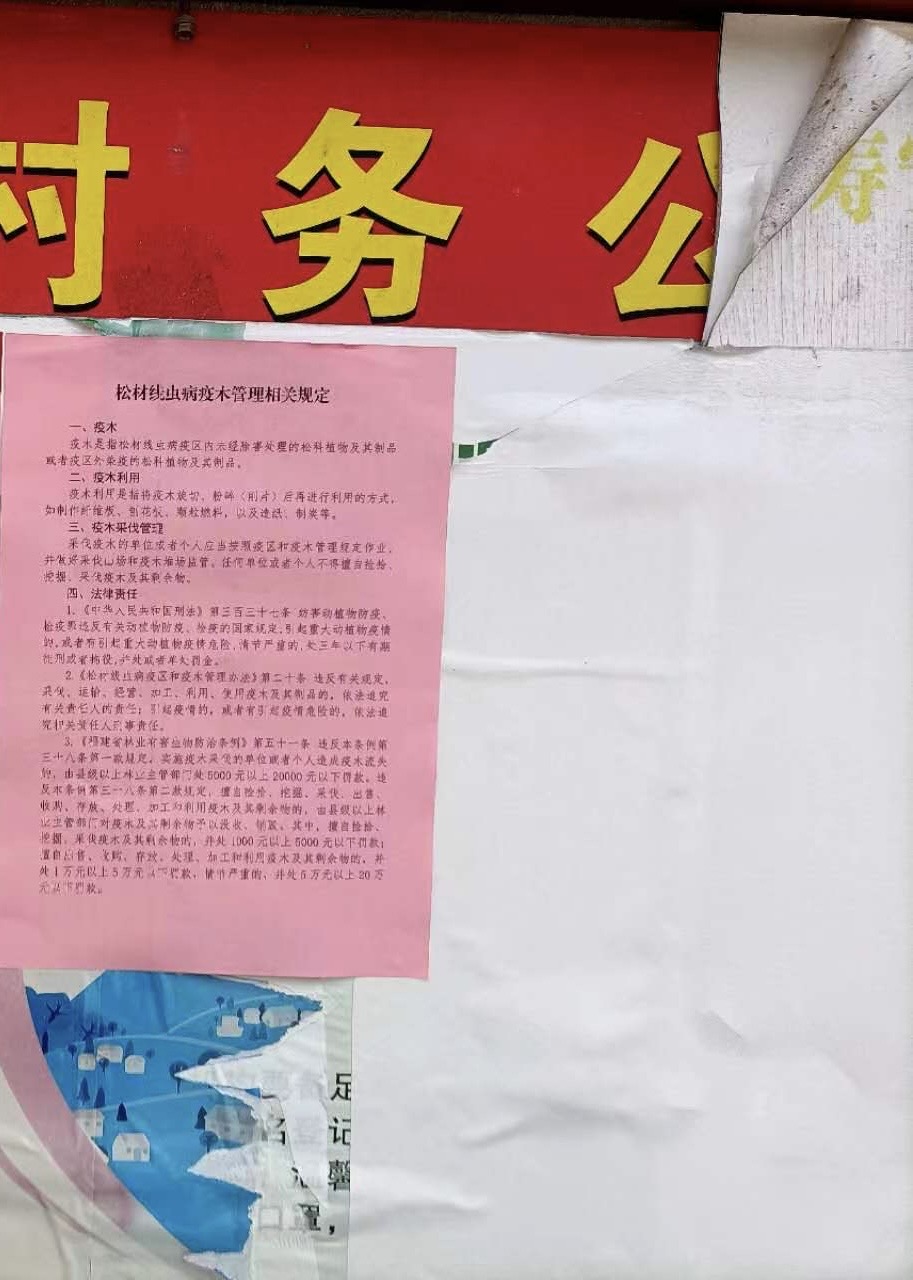 村务公
寿
松材线虫病疫木管理相关规定
一、疫木
疫木是指松材线虫病疫区内未经除害处理的松科植物及其制品
或者疫区外染疫的松科植物及其制品。
二、疫木利用
疫木利用是指将疫木旋切、粉碎（削片）后再进行利用的方式，
如制作纤维板、刨花板、颗粒燃料，以及造纸、制炭等。
三、疫木采伐管理
采伐疫木的单位或者个人应当按照疫区和疫木管理规定作业，
并做好采伐山场和疫木堆场监管。任何单位或者个人不得擅自捡拾、
挖掘、采伐疫木及其剩余物。
四、法律责任
1.《中华人民共和国刑法》第三百三十七条 妨害动植物防疫、
检疫罪违反有关动植物防疫、检疫的国家规定,引起重大动植物疫情
的,或者有引起重大动植物疫情危险,情节严重的,处三年以下有期
徒刑或者拘役,并处或者单处罚金。
2.《松材线虫病疫区和疫木管理办法》第二十条 违反有关规定，
采伐、运输、经营、加工、利用、使用疫木及其制品的，依法追究
有关责任人的责任；引起疫情的，或者有引起疫情危险的，依法追
究相关责任人刑事责任。
3.《福建省林业有害生物防治条例》第五十一条 违反本条例第
三十八条第一款规定，实施疫木采伐的单位或者个人造成疫木流失
的，由县级以上林业主管部门处5000元以上20000元以下罚款。违
反本条例第三十八条第二款规定，擅自捡拾、挖掘、采伐、出售、
收购、存放、处理、加工和利用疫木及其剩余物的，由县级以上林
业主管部门对疫木及其剩余物予以没收、销毁。其中，擅自捡拾、
挖掘、采伐疫木及其剩余物的，并处1000元以上5000元以下罚款；
擅自出售、收购、存放、处理、加工和利用疫木及其剩余物的，并
处1万元以上5万元以下罚款，情节严重的，并处5万元以上20万
元以下罚款。
足
记
馨
口罩，